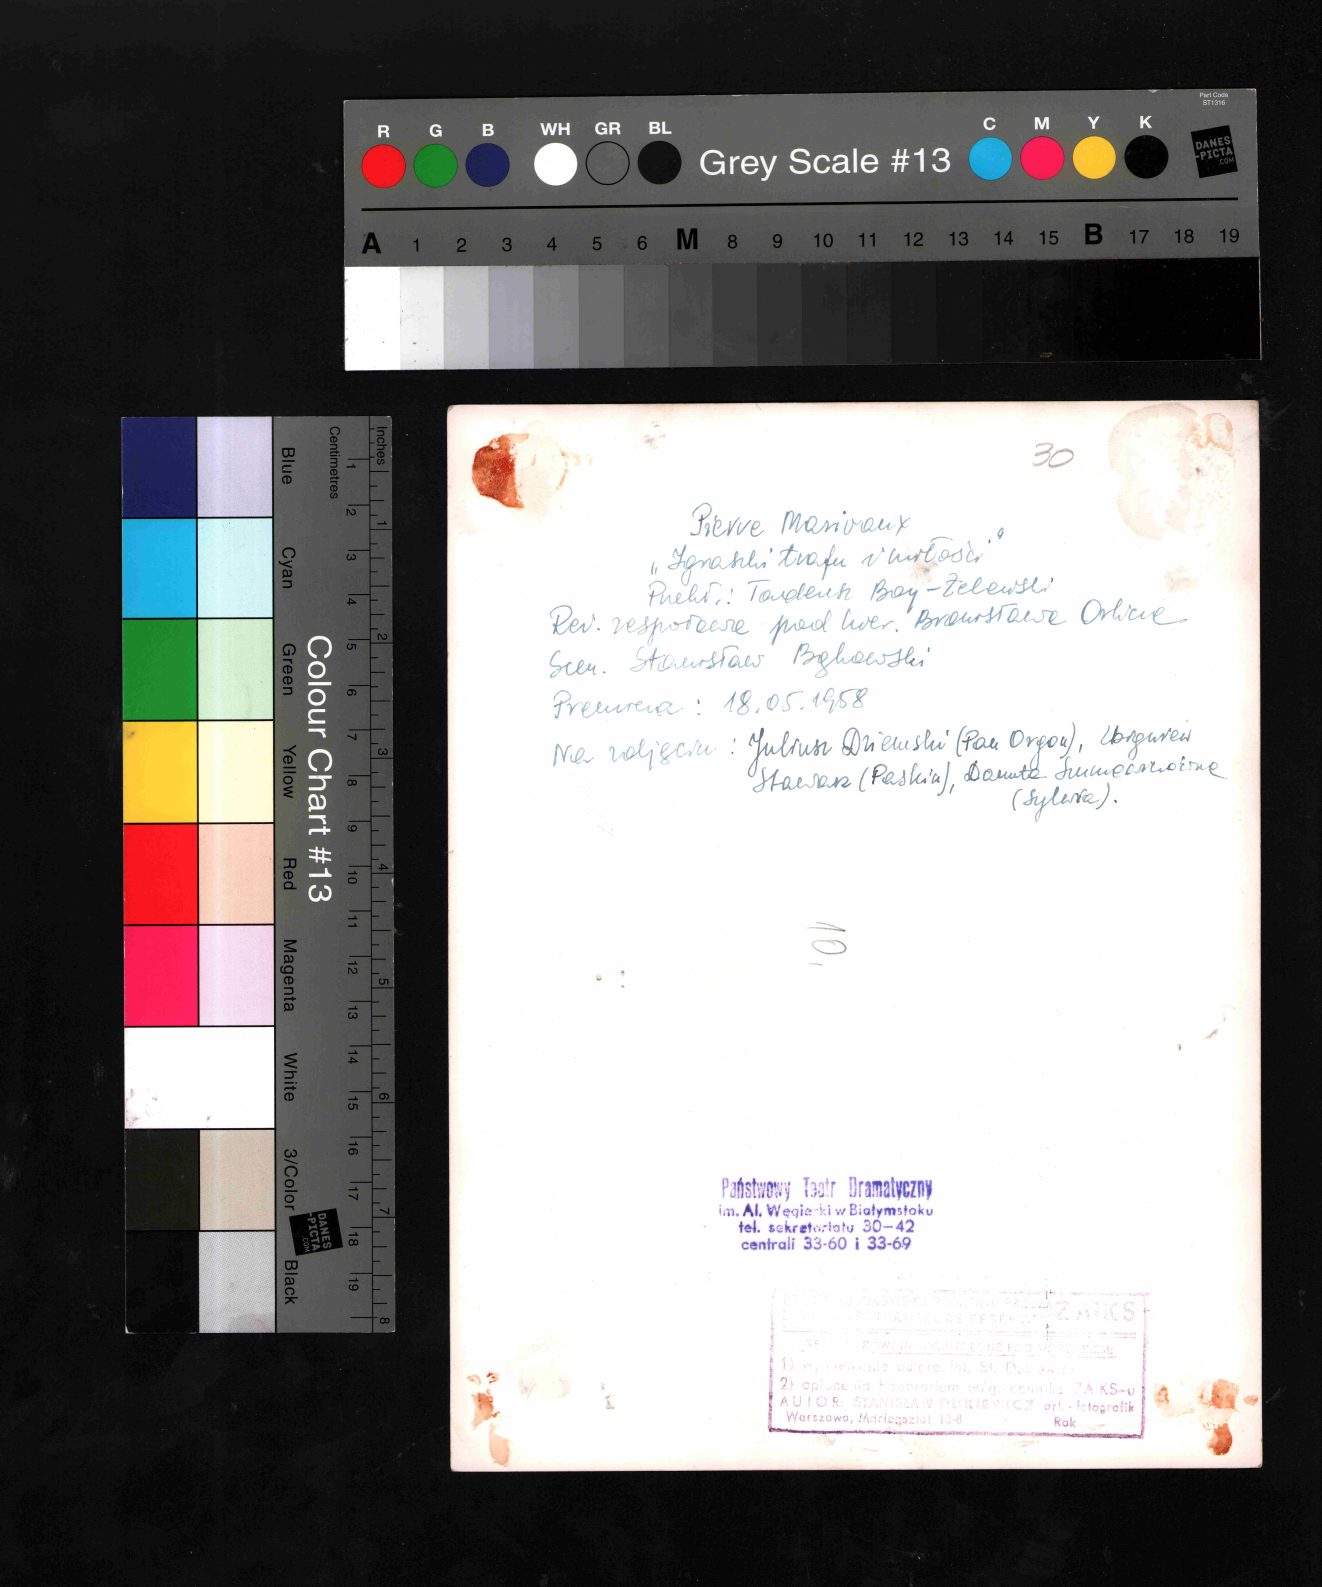 Part Code
ST1316
R G B WH GR BL Grey Scale #13 C M Y K
DANES
-PICTA
.COM
A 1 2 3 4 5 6 M 8 9 10 11 12 13 14 15 B 17 18 19
Colour Chart #13
Blue Cyan Green Yellow Red Magenta White 3/Color Black
Centimetres
1 2 3 4 5 6 7 8 9 10 11 12 13 14 15 16 17 18 19
Inches
1 2 3 4 5 6 7 8
DANES
-PICTA
.COM
30
Pierre Marivaux
„Igraszki trafu i miłości"
Przekł.: Tadeusz Boy-Żeleński
Reż. zespołowa pod kier. Bronisława Orlicza
Scen. Stanisław Bąkowski
Premiera: 18.05.1958
Na zdjęciu: Juliusz Dziemski (Pan Orgon), Zbigniew
Stawarz (Paskin), Danuta
(Sylwia).
10
Państwowy Teatr Dramatyczny
im. Al. Węgierki w Białymstoku
tel. sekretariatu 30-42
centrali 33-60 i 33-69
ZAIKS
1)
2) opłacenia honorarium ZAIKS-u
AUTOR: STANISŁAW DUKIEWICZ art.-fotografik
Warszawa, Mariensztat Rok